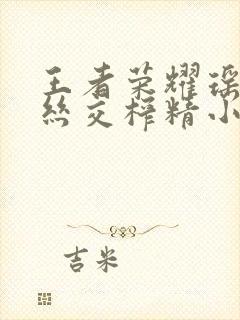 王者荣耀瑶
丝交榨精小
吉米